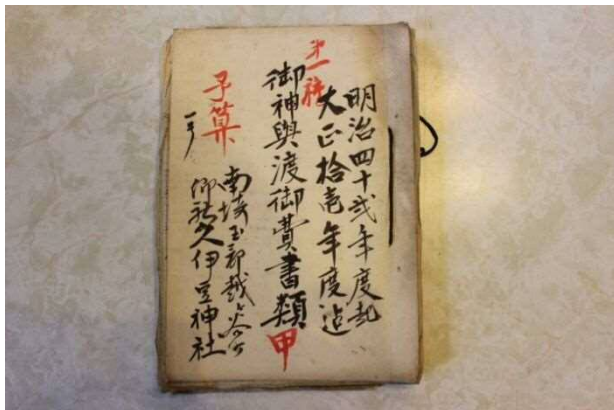 明治四十弐年度起
大正拾壱年度迠
第一種
御神輿渡御費書類甲
予算
南埼玉郡越ヶ谷町
郷社久伊豆神社